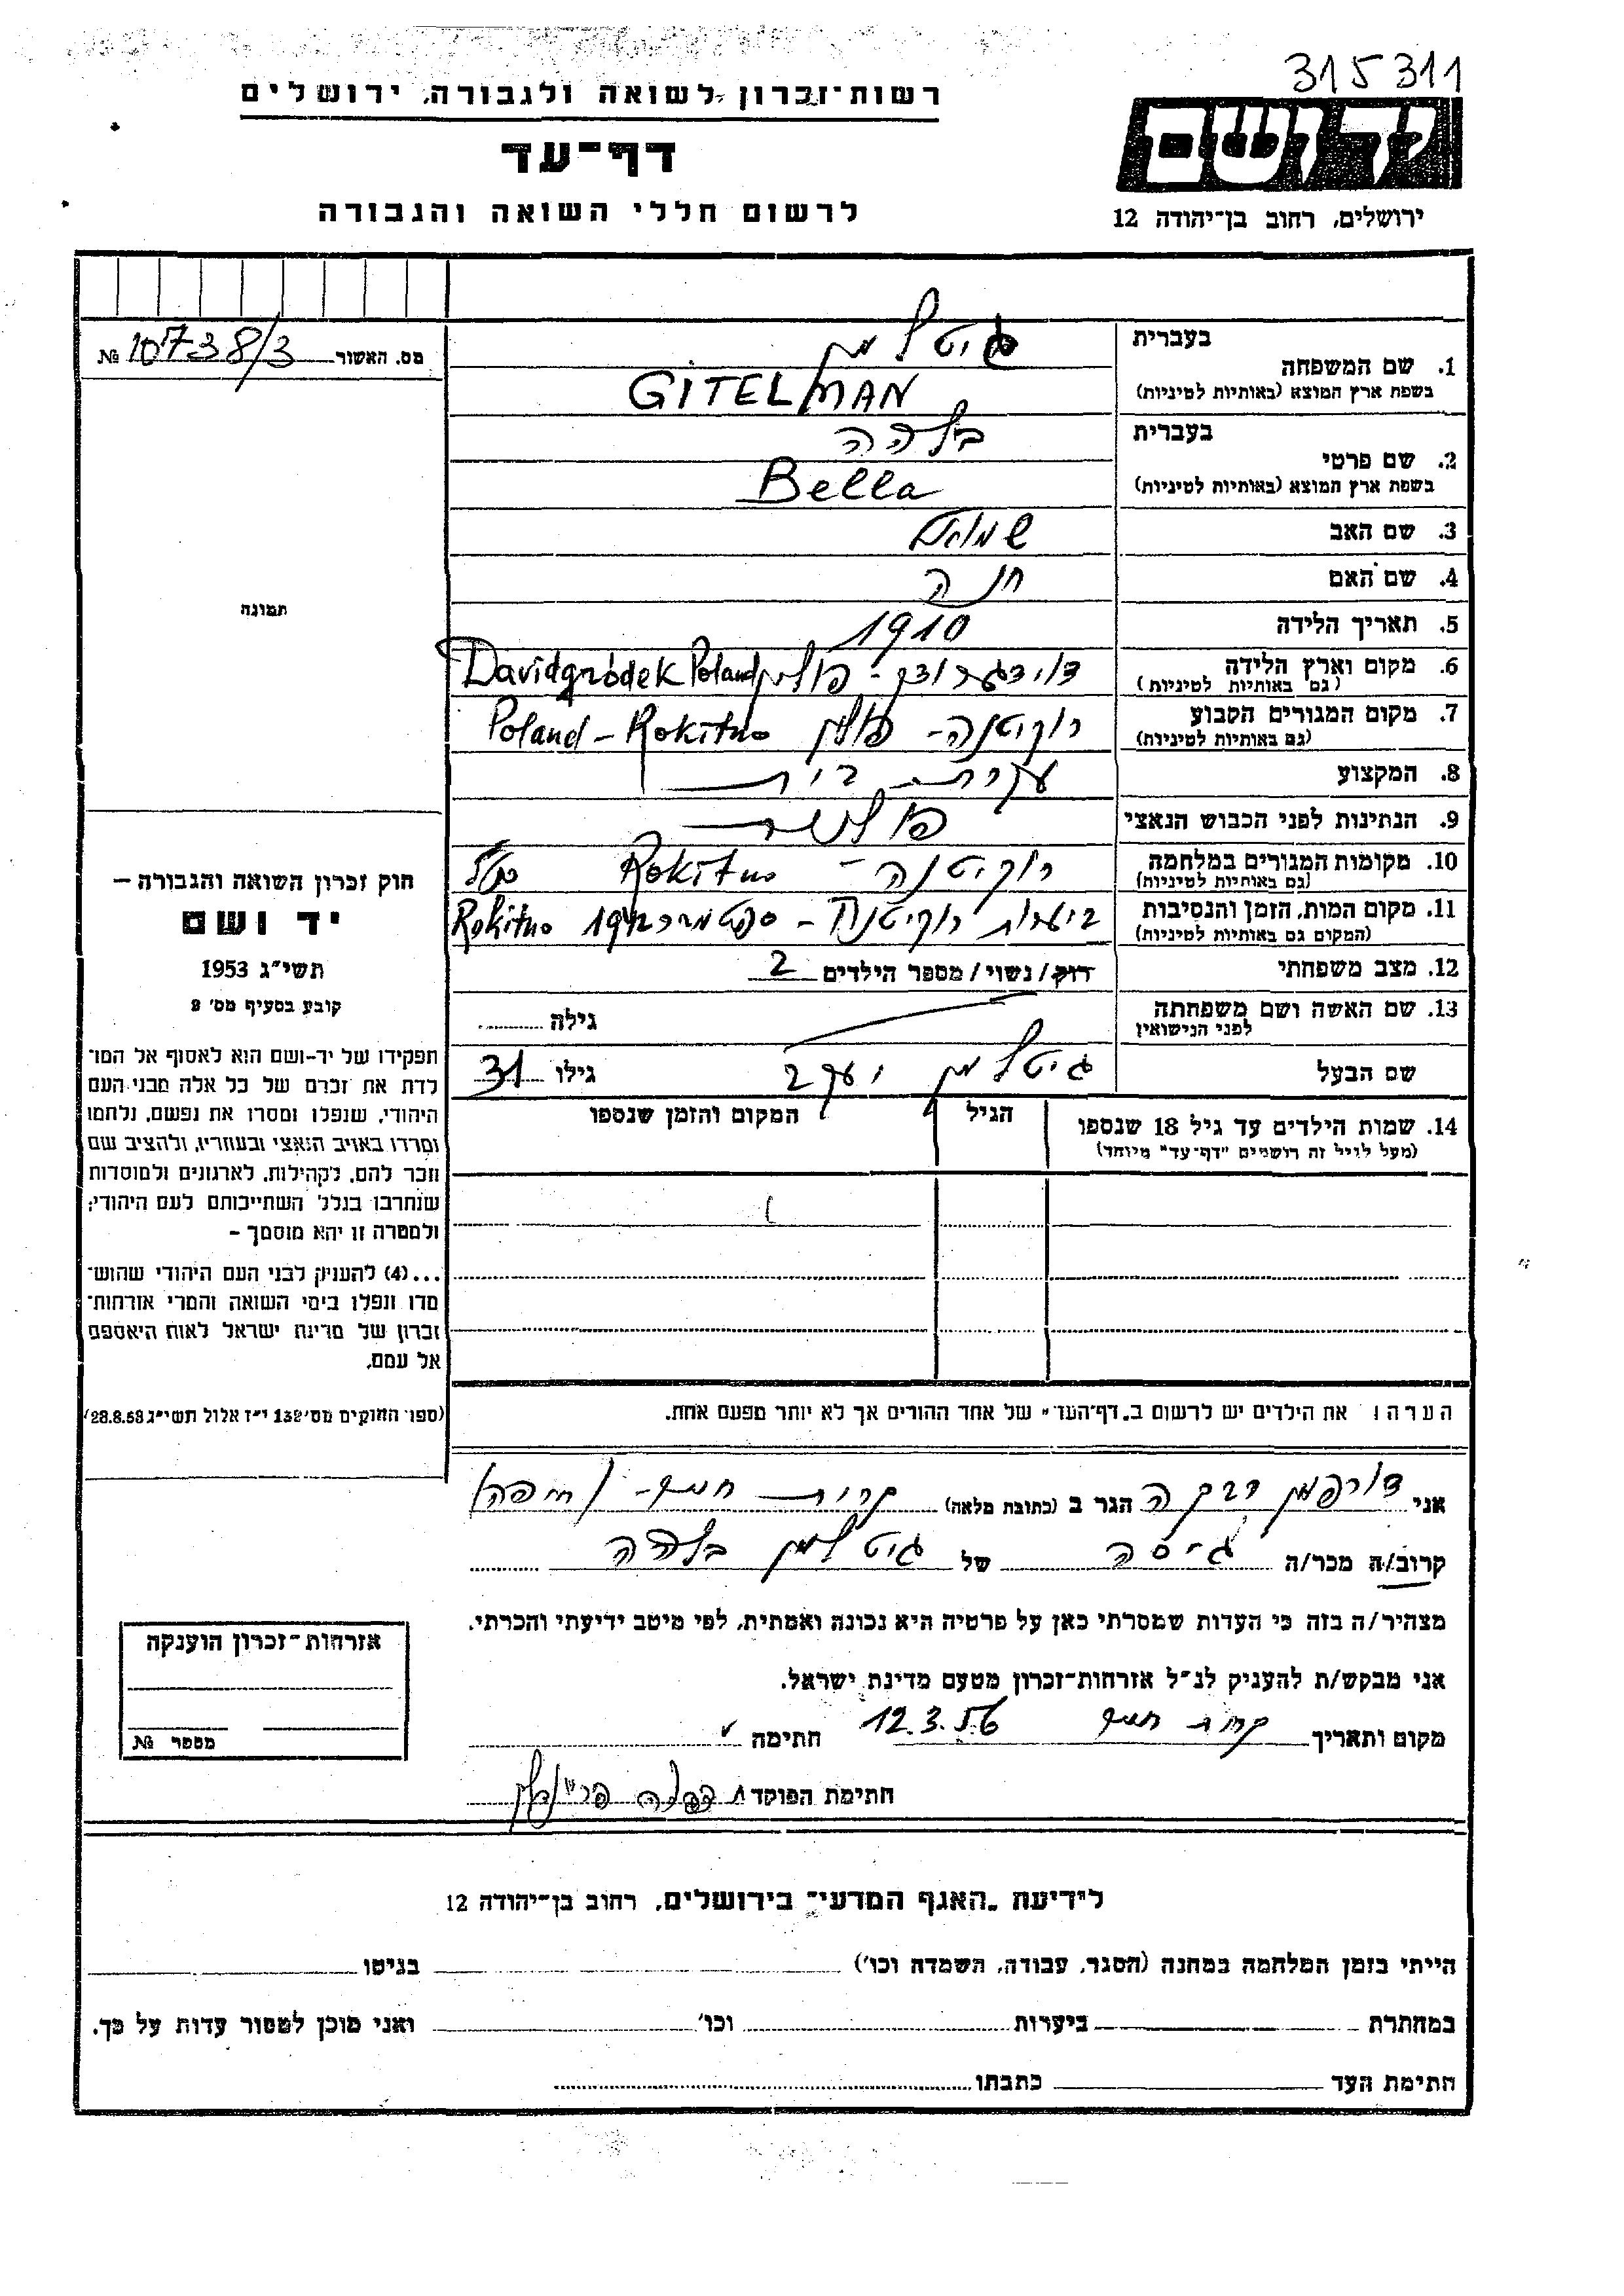 315311
רשות־זכרון לשואה ולגבורה, ירושלים
דף־עד
לרשום חללי השואה והגבורה
יד ושם
ירושלים, רחוב בן־יהודה 12
מס. האשור № 10738/3
1. שם המשפחה
בעברית גיטלמן
בשפת ארץ המוצא (באותיות לטיניות) GITELMAN
2. שם פרטי
בעברית בילהה
בשפת ארץ המוצא (באותיות לטיניות) Bella
3. שם האב שמואל
4. שם האם חנה
5. תאריך הלידה 1910
6. מקום וארץ הלידה דוידגרודק - פולין Davidgródek Poland
(גם באותיות לטיניות)
7. מקום המגורים הקבוע רוקיטנה - פולין Poland - Rokitno
(גם באותיות לטיניות)
8. המקצוע עקרת בית
9. הנתינות לפני הכבוש הנאצי פולנית
10. מקומות המגורים במלחמה רוקיטנה - Rokitno
(גם באותיות לטיניות)
11. מקום המות, הזמן והנסיבות ביערות רוקיטנה - ספטמבר 1942 Rokitno
(המקום גם באותיות לטיניות)
12. מצב משפחתי רווק/ נשוי/ מספר הילדים 2
13. שם האשה ושם משפחתה גילה
לפני הנישואין
שם הבעל גיטלמן יעקב גילו 31
14. שמות הילדים עד גיל 18 שנספו הגיל המקום והזמן שנספו
(מעל לגיל זה רושמים "דף־עד" מיוחד)
הערה! את הילדים יש לרשום ב„דף־העד" של אחד ההורים אך לא יותר מפעם אחת.
תמונה
חוק זכרון השואה והגבורה –
יד ושם
תשי"ג 1953
קובע בסעיף מס' 2
תפקידו של יד-ושם הוא לאסוף אל המו־
לדת את זכרם של כל אלה מבני העם
היהודי, שנפלו ומסרו את נפשם, נלחמו
ומרדו באויב הנאצי ובעוזריו, ולהציב שם
וזכר להם, לקהילות, לארגונים ולמוסדות
שנחרבו בגלל השתייכותם לעם היהודי;
ולמטרה זו יהא מוסמך –
...(4) להעניק לבני העם היהודי שהוש־
מדו ונפלו בימי השואה והמרי אזרחות־
זכרון של מדינת ישראל לאות היאספם
אל עמם.
(ספר החוקים מס' 132 י"ז אלול תשי"ג 28.8.53)
אני דורפמן רבקה הגר ב (כתובת מלאה) קרית (חיפה)
קרוב/ה מכר/ה גיסה של גיטלמן בלהה
מצהיר/ה בזה כי העדות שמסרתי כאן על פרטיה היא נכונה ואמתית, לפי מיטב ידיעתי והכרתי.
אני מבקש/ת להעניק לנ"ל אזרחות־זכרון מטעם מדינת ישראל.
מקום ותאריך קרית 12.3.56 חתימה
חתימת הפוקד
אזרחות־זכרון הוענקה
מספר №
לידיעת „האגף המדעי" בירושלים, רחוב בן־יהודה 12
הייתי בזמן המלחמה במחנה (הסגר, עבודה, השמדה וכו') בגיטו
במחתרת ביערות וכו' ואני מוכן למסור עדות על כך.
חתימת העד כתבתו